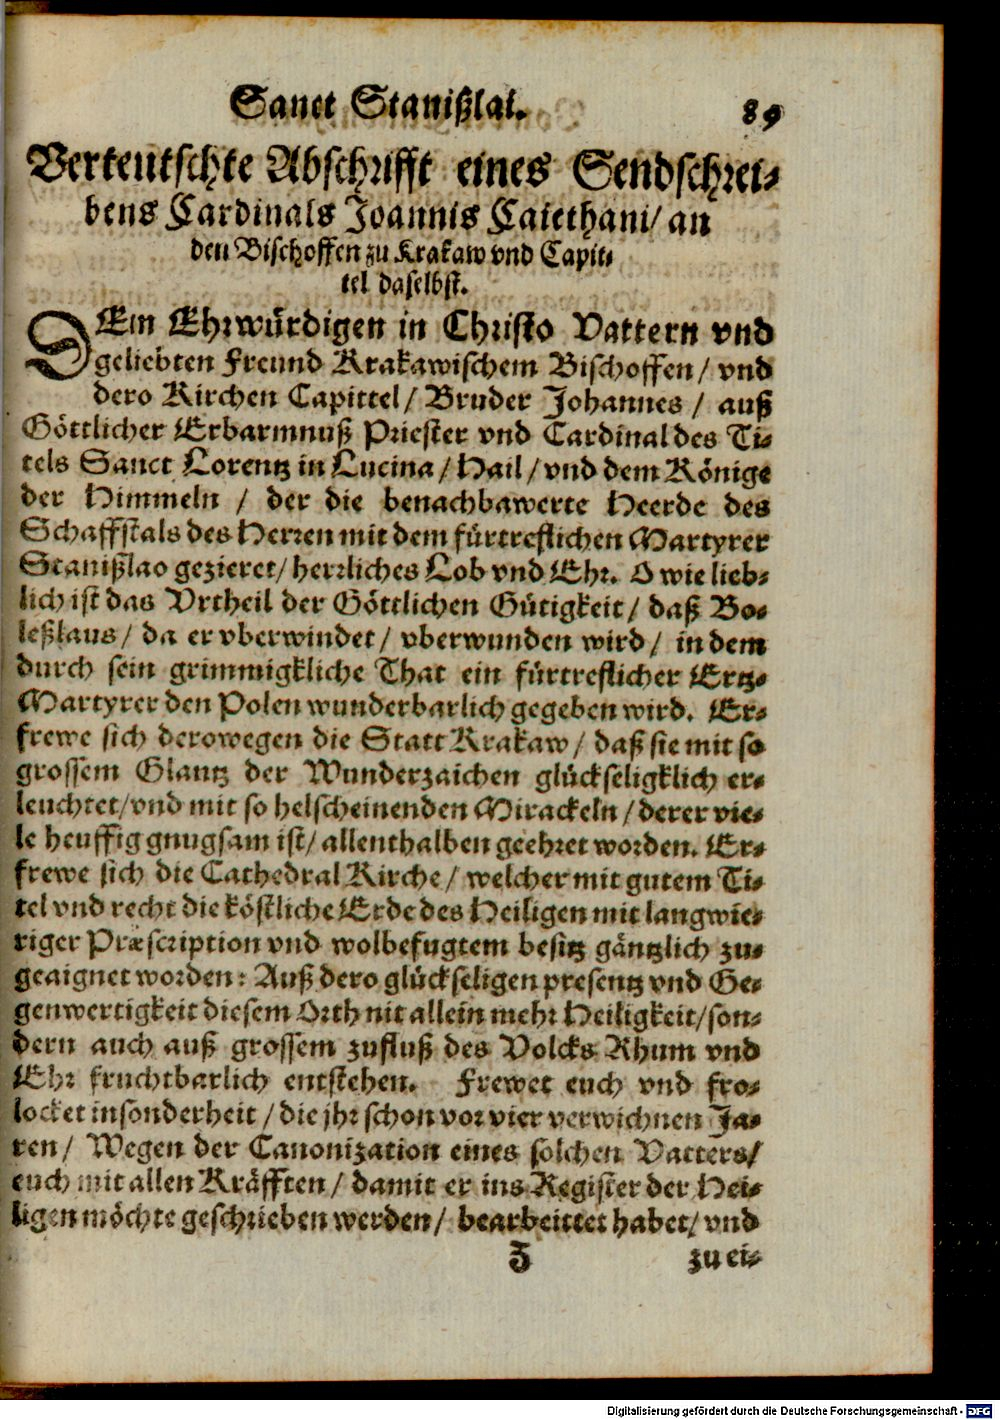 Sanct Stanißlai.
89
Verteutschte Abschrifft eines Sendschrei-
bens Cardinals Joannis Caiethani/ an
den Bischoffen zu Krakaw vnd Capit-
tel daselbst.
DEm Ehrwürdigen in Christo Vattern vnd
geliebten Freund Krakawischem Bischoffen/ vnd
dero Kirchen Capittel/ Bruder Johannes / auß
Göttlicher Erbarmnuß Priester vnd Cardinal des Ti-
tels Sanct Lorentz in Lucina/ Hail/ vnd dem Könige
der Himmeln / der die benachbawerte Heerde des
Schaffstals des Herren mit dem fürtreflichen Martyrer
Stanißlao gezieret/ herrliches Lob vnd Ehr. O wie lieb-
lich ist das Vrtheil der Göttlichen Gütigkeit/ daß Bo-
leßlaus/ da er vberwindet/ vberwunden wird/ in dem
durch sein grimmigkliche That ein fürtreflicher Ertz-
Martyrer den Polen wunderbarlich gegeben wird. Er-
frewe sich derowegen die Statt Krakaw/ daß sie mit so
grossem Glantz der Wunderzaichen glückseligklich er-
leuchtet/ vnd mit so helscheinenden Mirackeln/ derer vie-
le heuffig gnugsam ist/ allenthalben geehret worden. Er-
frewe sich die Cathedral Kirche/ welcher mit gutem Ti-
tel vnd recht die köstliche Erde des Heiligen mit langwie-
riger Præscription vnd wolbefugtem besitz gäntzlich zu-
geaignet worden: Auß dero glückseligen presentz vnd Ge-
genwertigkeit diesem Orth nit allein mehr Heiligkeit/ son-
dern auch auß grossem zufluß des Volcks Rhum vnd
Ehr fruchtbarlich entstehen. Frewet euch vnd fro-
locket insonderheit/ die jhr schon vor vier verwichnen Ja-
ren/ Wegen der Canonization eines solchen Vatters/
euch mit allen Kräfften/ damit er ins Register der Hei-
ligen möchte geschrieben werden/ bearbeittet habet/ vnd
Z
zu ei-
Digitalisierung gefördert durch die Deutsche Forschungsgemeinschaft - DFG